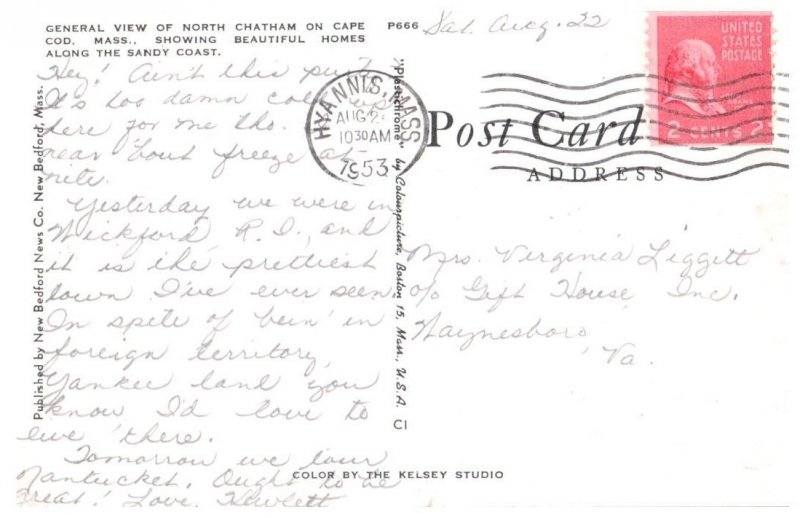 GENERAL VIEW OF NORTH CHATHAM ON CAPE
COD, MASS., SHOWING BEAUTIFUL HOMES
ALONG THE SANDY COAST.
P666
Sat. Aug. 22
Hey! Ain't this
It's too damn cold up
here for me tho.
near bout freeze at
nite.
Yesterday we were in
Wickford, R. I., and
it is the prettiest
town I've ever seen.
In spite of bein' in
foreign territory,
Yankee land you
know I'd love to
live there.
Tomorrow we tour
Nantucket. Ought to be
great! Love, Hewlett
Published by New Bedford News Co. New Bedford, Mass.
"Plastichrome" by Colourpicture, Boston 15, Mass., U.S.A.
C1
HYANNIS, MASS
AUG 2
10 30 AM
1953
UNITED
STATES
POSTAGE
2 CENTS 2
Post Card
ADDRESS
Mrs. Virginia Liggett
c/o Gift House Inc.
Waynesboro
Va.
COLOR BY THE KELSEY STUDIO